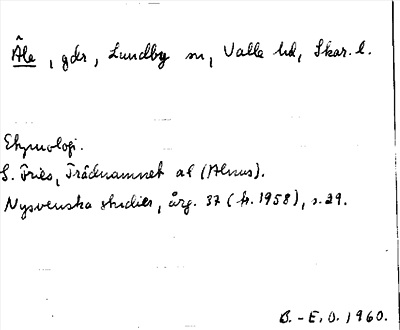 Åle, gdr, Lundby sn, Valle hd, Skar. l.
Etymologi.
S. Fries, Trädnamnet al (Alnus).
Nysvenska studier, årg. 37 (tr. 1958), s. 29.
B.-E. O. 1960.